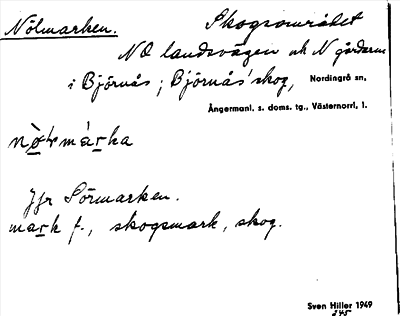 Nölmarken. Skogsområdet
NO landsvägen och N gårdarna
i Björnås; Björnås' skog, Nordingrå sn,
Ångermanl. s. doms. tg., Västernorrl. l.
Jfr Sörmarken.
mark f., skogsmark, skog.
Sven Hiller 1949